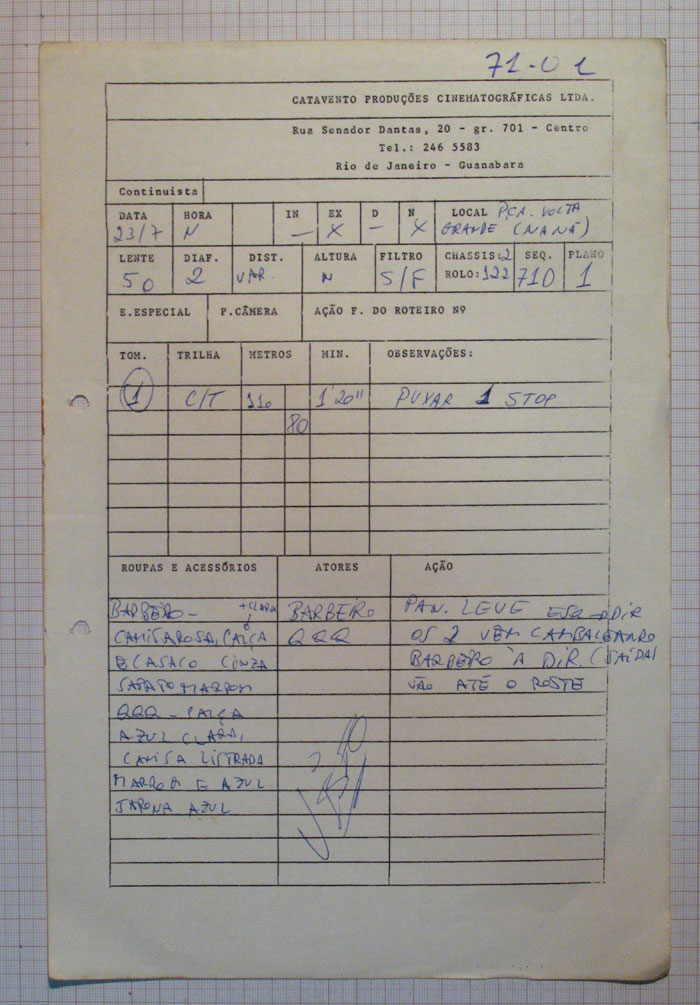 71-01
CATAVENTO PRODUÇÕES CINEMATOGRÁFICAS LTDA.
Rua Senador Dantas, 20 - gr. 701 - Centro
Tel.: 246 5583
Rio de Janeiro - Guanabara
Continuista
DATA HORA IN EX D N LOCAL PÇA. VOLTA
23/7 N — X — X GRANDE (NANÁ)
LENTE DIAF. DIST. ALTURA FILTRO CHASSIS: 2 SEQ. PLANO
50 2 VAR. N S/F ROLO: 122 710 1
E.ESPECIAL P.CÂMERA AÇÃO F. DO ROTEIRO Nº
TOM. TRILHA METROS MIN. OBSERVAÇÕES:
1 C/T 110 1'20" PUXAR 1 STOP
80
ROUPAS E ACESSÓRIOS ATORES AÇÃO
BARBEIRO - + CLARA BARBEIRO PAN. LEVE ESQ DIR
CAMISA ROSA, CALÇA QQQ OS 2 VÊM CAMBALEANDO
E CASACO CINZA BARBEIRO À DIR. (SAÍDA)
SAPATO MARROM VÃO ATÉ O POSTE
QQQ - CALÇA
AZUL CLARA,
CAMISA LISTRADA
MARROM E AZUL
JAPONA AZUL